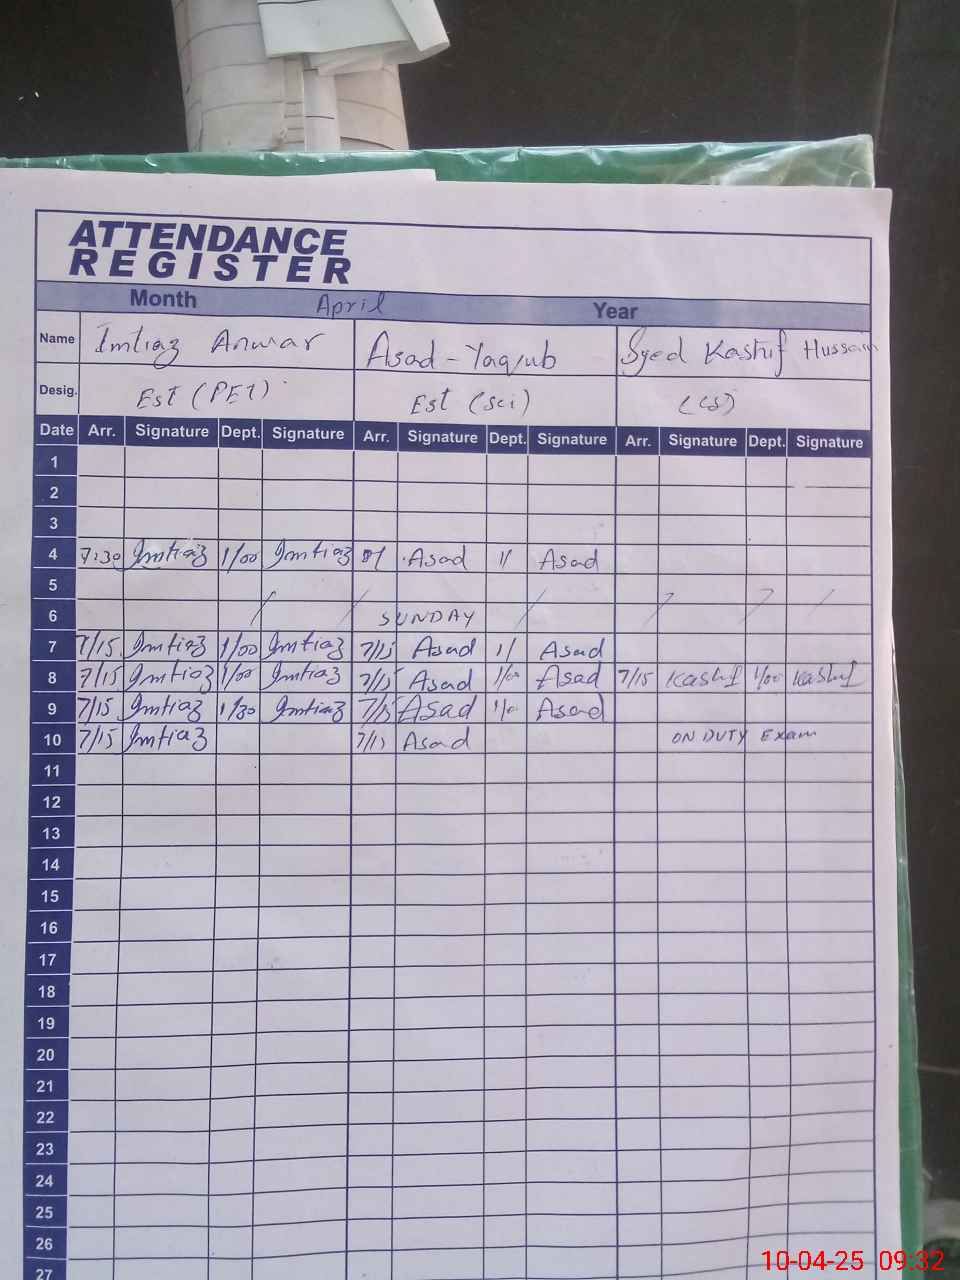 ATTENDANCE
REGISTER
Month April Year
Name Imtiaz Anwar Asad-Yaqub Syed Kashif Hussain
Desig. Est (PET) Est (sci) (CS)
Date Arr. Signature Dept. Signature Arr. Signature Dept. Signature Arr. Signature Dept. Signature
1
2
3
4 7:30 Imtiaz 1/00 Imtiaz Asad 1/ Asad
5
6 SUNDAY
7 7/15 Imtiaz 1/00 Imtiaz 7/15 Asad 1/ Asad
8 7/15 Imtiaz 1/00 Imtiaz 7/15 Asad 1/00 Asad 7/15 Kashif 1/00 Kashif
9 7/15 Imtiaz 1/30 Imtiaz 7/15 Asad Asad
10 7/15 Imtiaz 7/15 Asad ON DUTY Exam
11
12
13
14
15
16
17
18
19
20
21
22
23
24
25
26
27
10-04-25 09:32